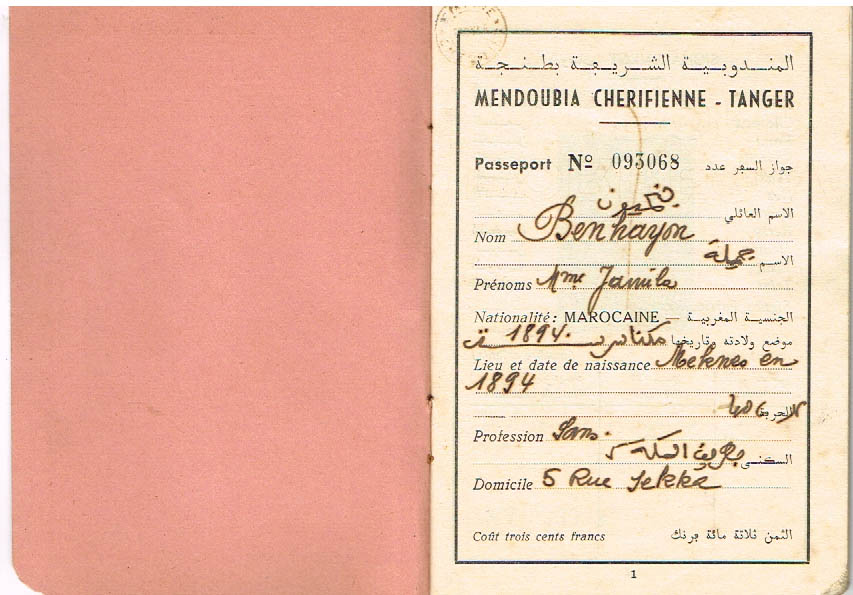 المندوبية الشريفة بطنجة
MENDOUBIA CHERIFIENNE - TANGER
Passeport Nº 093068 جواز السفر عدد
الاسم العائلي
Nom Benhayon
الاسم جميلة
Prénoms Mme Jamila
Nationalité: MAROCAINE — الجنسية المغربية
موضع ولادته وتاريخها مكناس 1894.
Lieu et date de naissance Meknes en
1894
الحرفة
Profession Sans.
السكنى
Domicile 5 Rue Sekka
Coût trois cents francs الثمن ثلاثة مائة فرنك
1